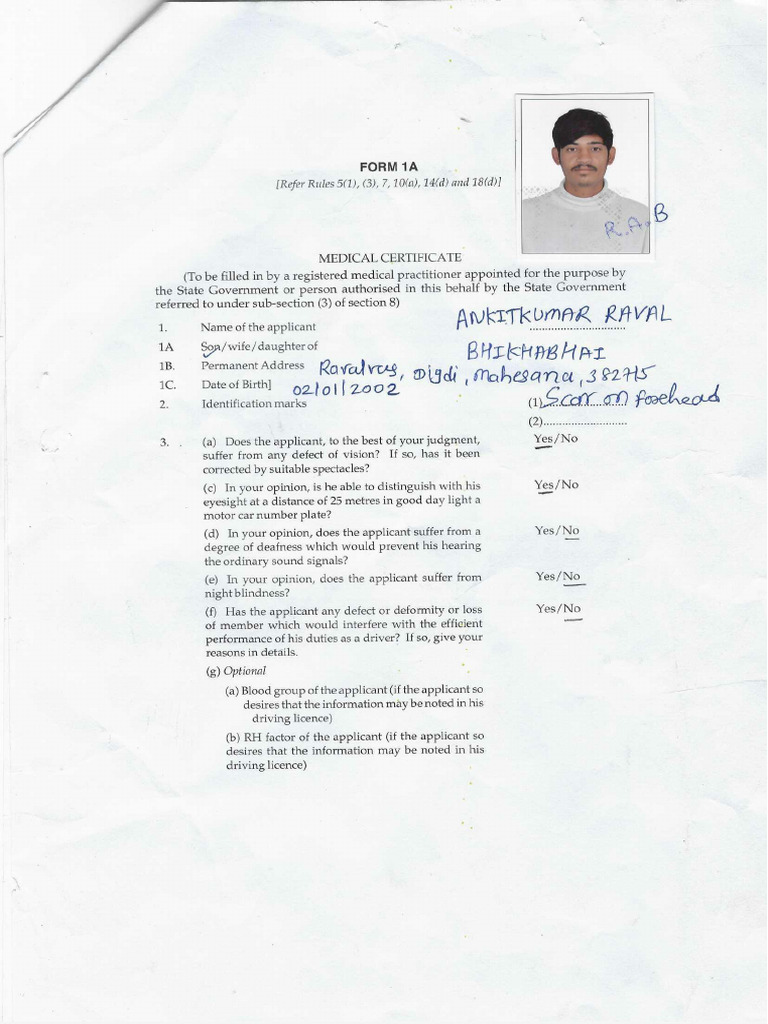 FORM 1A
[Refer Rules 5(1), (3), 7, 10(a), 14(d) and 18(d)]
R.A.B
MEDICAL CERTIFICATE
(To be filled in by a registered medical practitioner appointed for the purpose by
the State Government or person authorised in this behalf by the State Government
referred to under sub-section (3) of section 8)
1. Name of the applicant ANKITKUMAR RAVAL
1A Son/wife/daughter of BHIKHABHAI
1B. Permanent Address Ravalvas, Digdi, Mahesana, 382715
1C. Date of Birth] 02/01/2002
2. Identification marks (1) Scar on forehead
(2)...........................
3. (a) Does the applicant, to the best of your judgment, Yes/No
suffer from any defect of vision? If so, has it been
corrected by suitable spectacles?
(c) In your opinion, is he able to distinguish with his Yes/No
eyesight at a distance of 25 metres in good day light a
motor car number plate?
(d) In your opinion, does the applicant suffer from a Yes/No
degree of deafness which would prevent his hearing
the ordinary sound signals?
(e) In your opinion, does the applicant suffer from Yes/No
night blindness?
(f) Has the applicant any defect or deformity or loss Yes/No
of member which would interfere with the efficient
performance of his duties as a driver? If so, give your
reasons in details.
(g) Optional
(a) Blood group of the applicant (if the applicant so
desires that the information may be noted in his
driving licence)
(b) RH factor of the applicant (if the applicant so
desires that the information may be noted in his
driving licence)